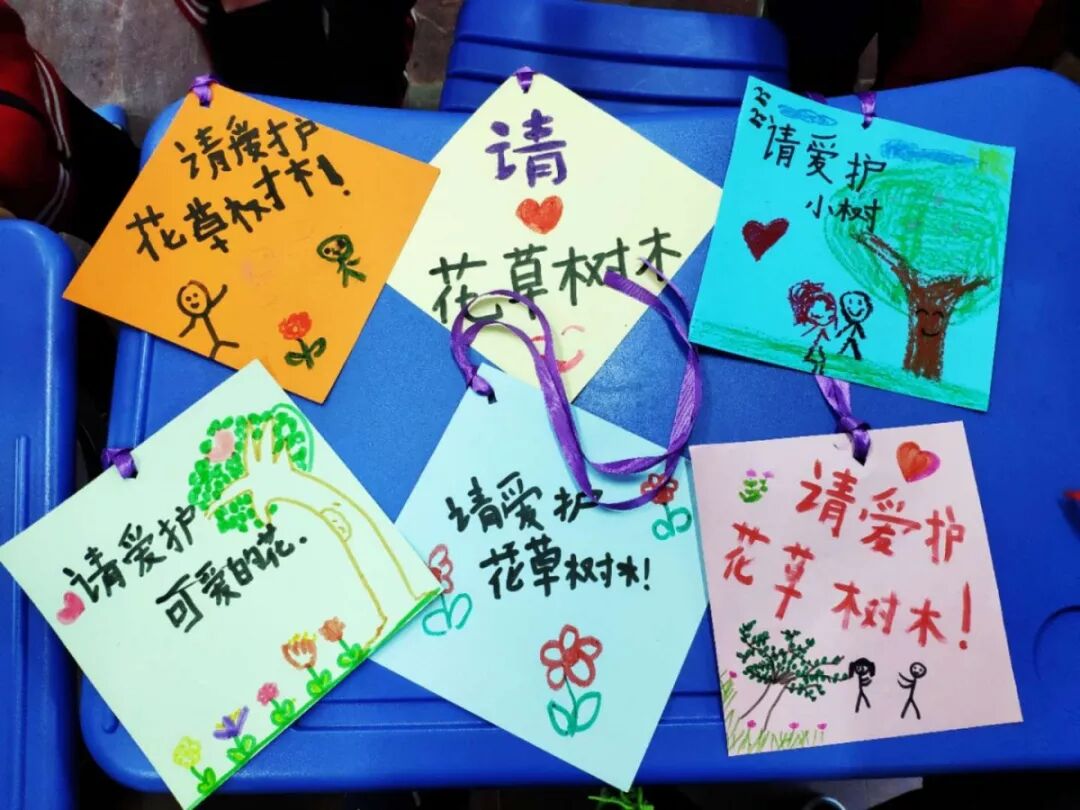 请爱护
花草树木!
请
花草树木
请爱护
小树
请爱护
可爱的花.
请爱护
花草树木!
请爱护
花草树木!